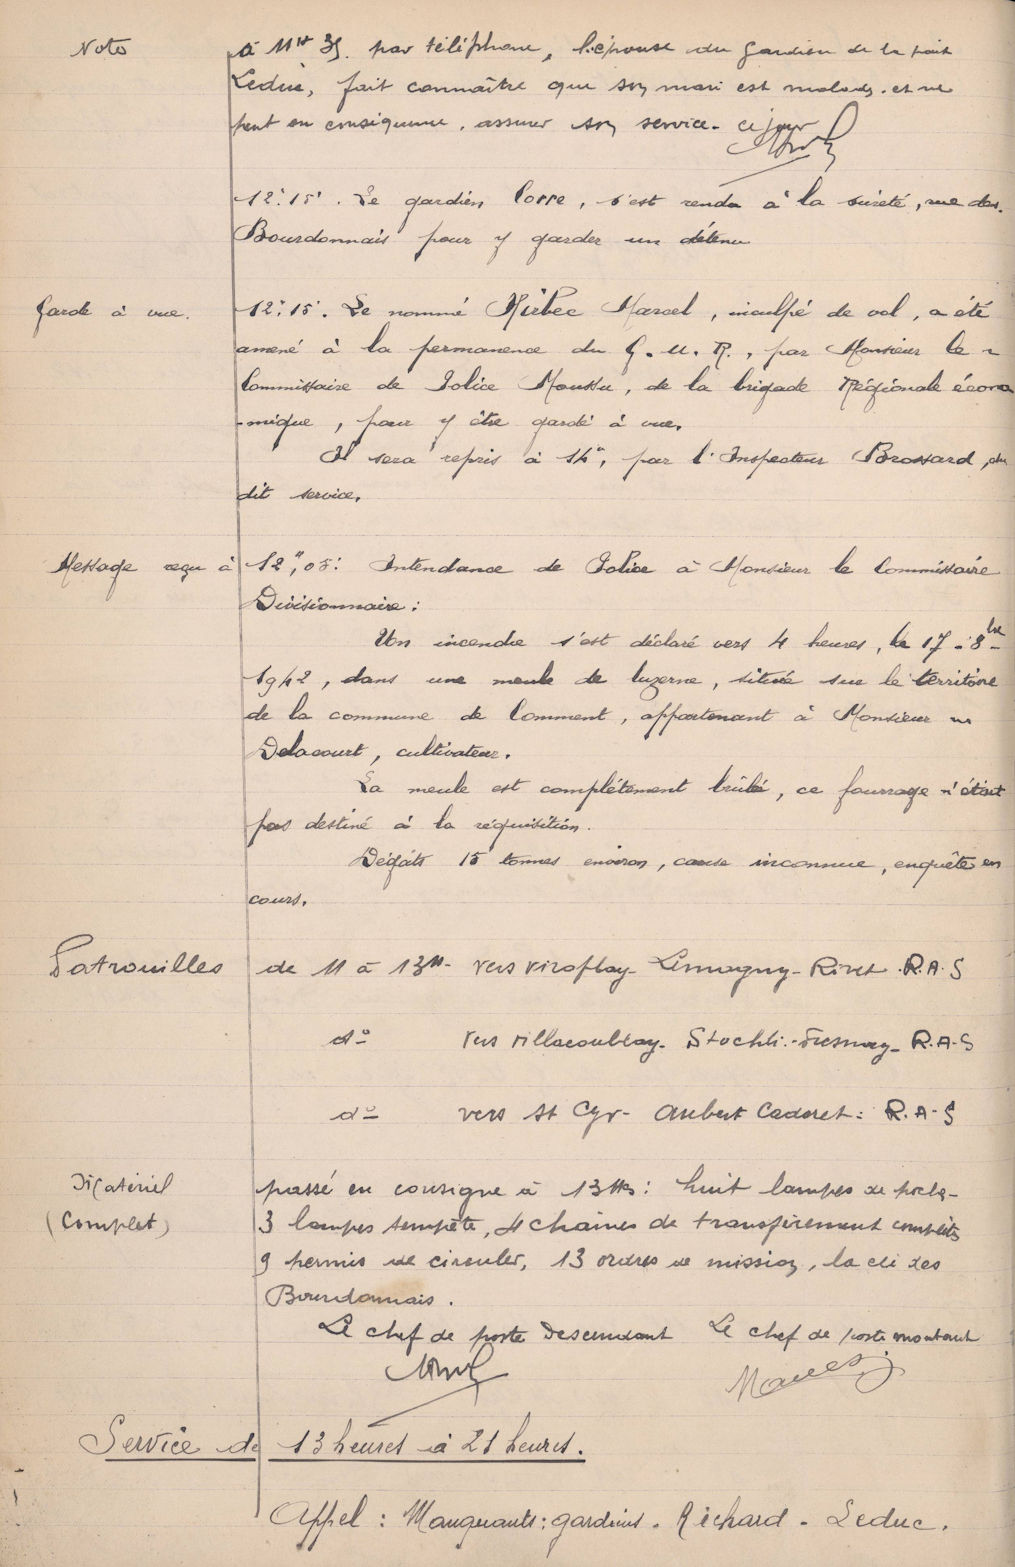 Note
à 11H 35. par téléphone, l'épouse du gardien de la paix
Leduc, fait connaître que son mari est malade. et ne
peut en conséquence, assurer son service. ce jour
12:15'. Le gardien Corre, s'est rendu à la sûreté, rue des.
Bourdonnais pour y garder un détenu
Garde à vue.
12:15'. Le nommé Marcel, inculpé de vol, a été
amené à la permanence du G.U.R., par Monsieur le
Commissaire de Police Moussu, de la brigade Régionale écono
-mique, pour y être gardé à vue.
Il sera repris à 14", par l'Inspecteur Brossard, du
dit service.
Message reçu à 12",05: Intendance de Police à Monsieur le Commissaire
Divisionnaire:
Un incendie s'est déclaré vers 4 heures, le 17-8bre-
1942, dans une meule de luzerne, située sur le territoire
de la commune de Comment, appartenant à Monsieur
Delacourt, cultivateur.
La meule est complétement brûlée, ce fourrage n'était
pas destiné à la réquisition.
Dégâts 15 tonnes environ, cause inconnue, enquête en
cours.
Patrouilles
de 11 à 13H- vers Viroflay- Limagny- Rivet. R.A.S
d°- vers Villacoublay- Stochli.- Fresnay- R.A.S
d°- vers St Cyr- Aubert Cadoret: R.A.S
Matériel
(Complet)
passé en consigne à 13Hs: huit lampes de poche-
3 lampes tempête, 4 chaînes de transfèrement complètes
9 permis de circuler, 13 ordres de mission, la clé des
Bourdonnais.
Le chef de poste Descendant Le chef de poste montant
Service de 13 heures à 21 heures.
Appel: Manquants: gardiens. Richard - Leduc.